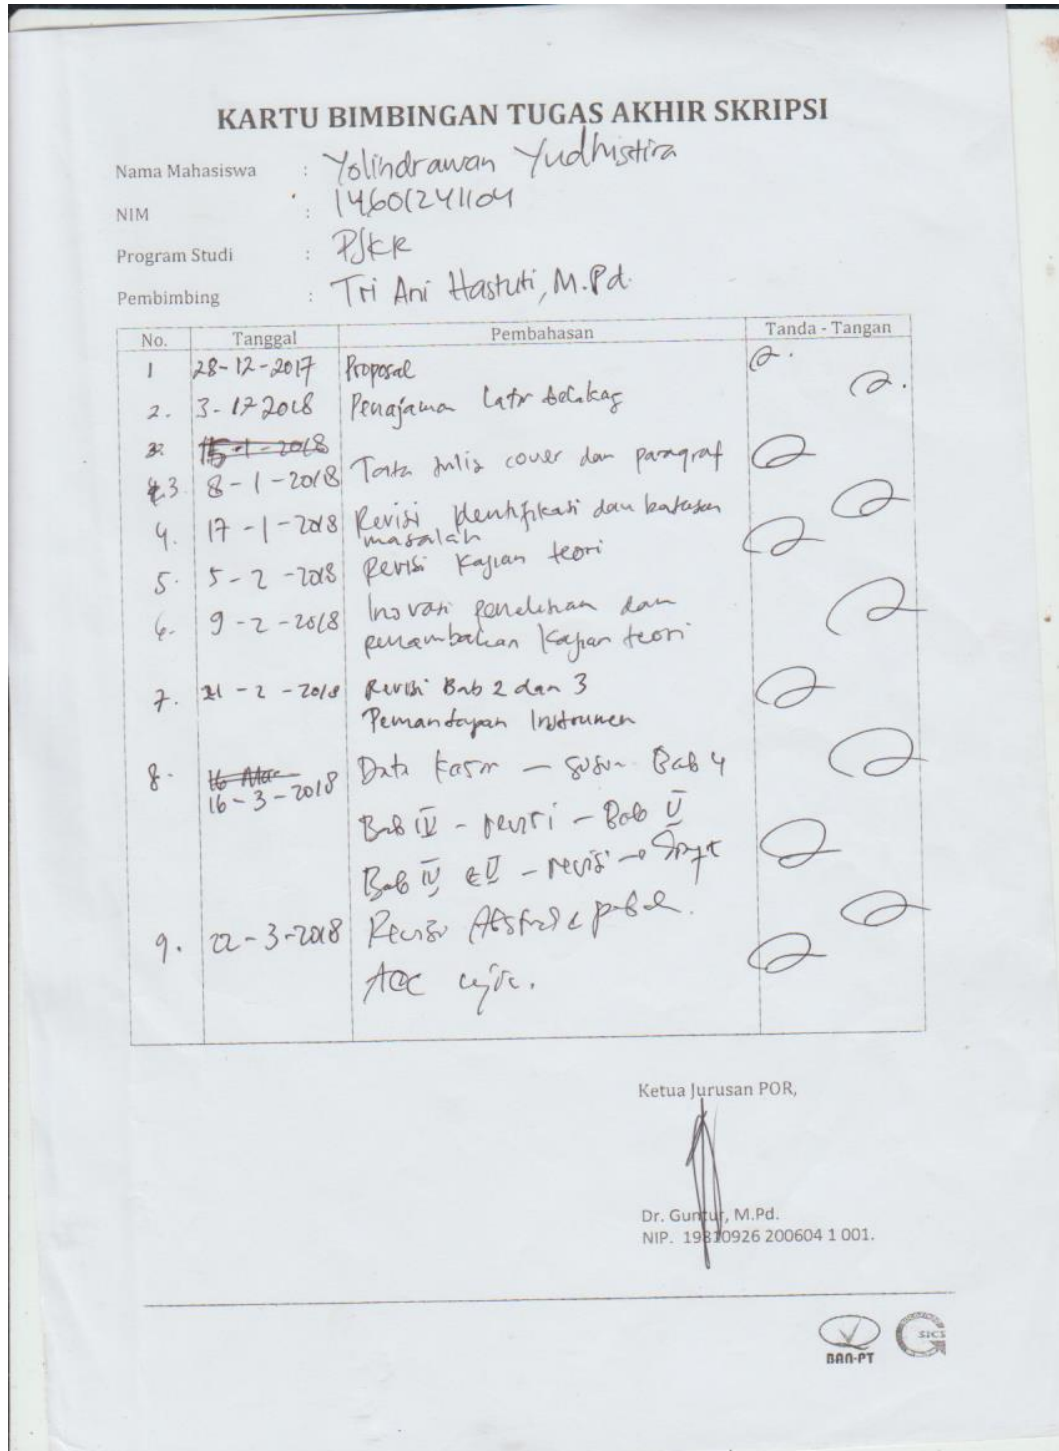 KARTU BIMBINGAN TUGAS AKHIR SKRIPSI
Nama Mahasiswa : Yolindrawan Yudhistira
NIM : 14601241104
Program Studi : PJKR
Pembimbing : Tri Ani Hastuti, M.Pd.
No. Tanggal Pembahasan Tanda - Tangan
1 28-12-2017 Proposal
2. 3-1-2018 Penajaman latar belakag
8-1-2018 Tata tulis cover dan paragraf
3
4. 17-1-2018 Revisi Identifikasi dan batasan
masalah
5. 5-2-2018 Revisi Kajian teori
6. 9-2-2018 Inovasi penelitian dan
penambahan Kajian teori
7. 21-2-2018 Revisi Bab 2 dan 3
Pemantapan Instrumen
8. 16 Mar Data kasar - susun Bab 4
16-3-2018
Bab IV - revisi - Bab V
Bab IV & V - revisi
9. 22-3-2018 Revisi Abstrak
ACC ujian.
Ketua Jurusan POR,
Dr. Guntur, M.Pd.
NIP. 19810926 200604 1 001.
BAN-PT
SICS